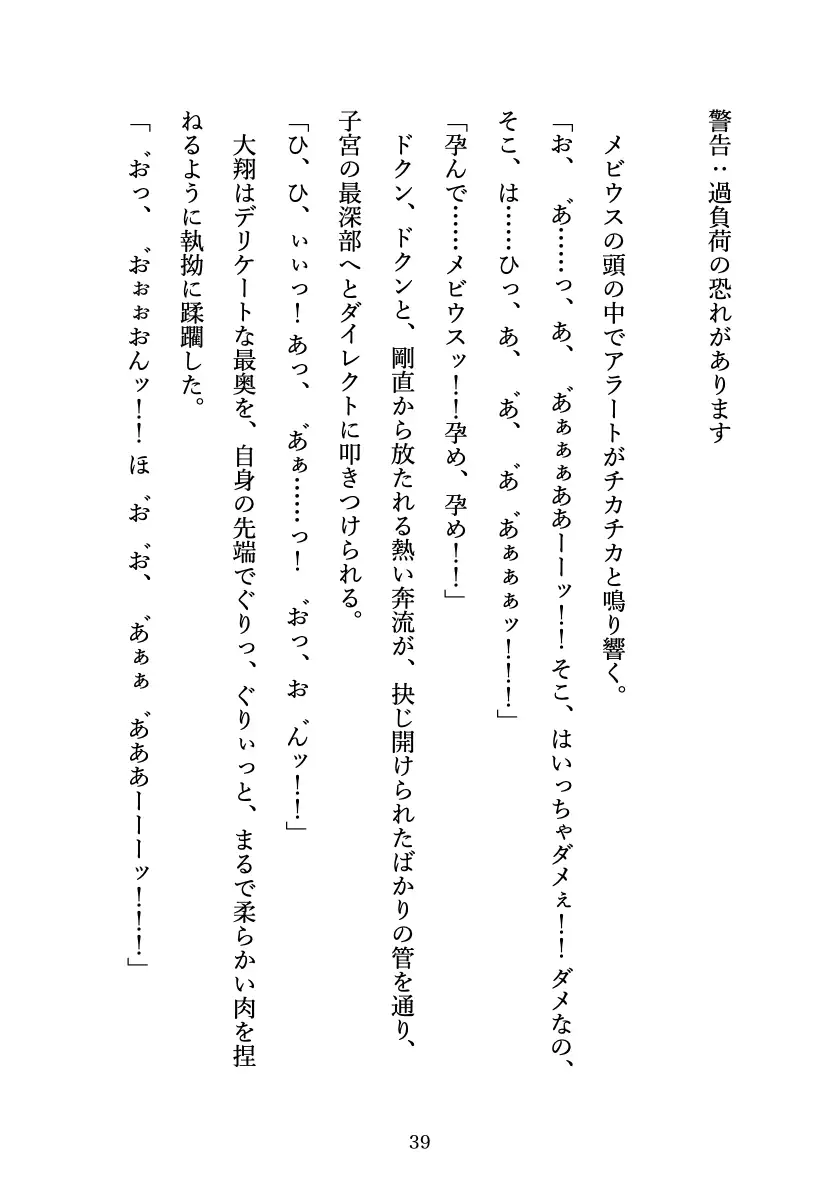 警告：過負荷の恐れがあります
メビウスの頭の中でアラートがチカチカと鳴り響く。
「お、あ゛……っ、あ、あ゛ぁぁぁああーーッ！！そこ、はいっちゃダメぇ！！ダメなの、
そこ、は……ひっ、あ、あ゛、あ゛あ゛ぁぁぁッ！！！」
「孕んで……メビウスッ！！孕め、孕め！！」
ドクン、ドクンと、剛直から放たれる熱い奔流が、抉じ開けられたばかりの管を通り、
子宮の最深部へとダイレクトに叩きつけられる。
「ひ、ひ、ぃぃっ！あっ、あ゛ぁ……っ！お゛っ、おん゛ッ！！」
大翔はデリケートな最奥を、自身の先端でぐりっ、ぐりぃっと、まるで柔らかい肉を捏
ねるように執拗に蹂躙した。
「お゛っ、お゛ぉぉおんッ！！ほお゛お゛、あ゛ぁぁあ゛ああーーーッ！！！」
39